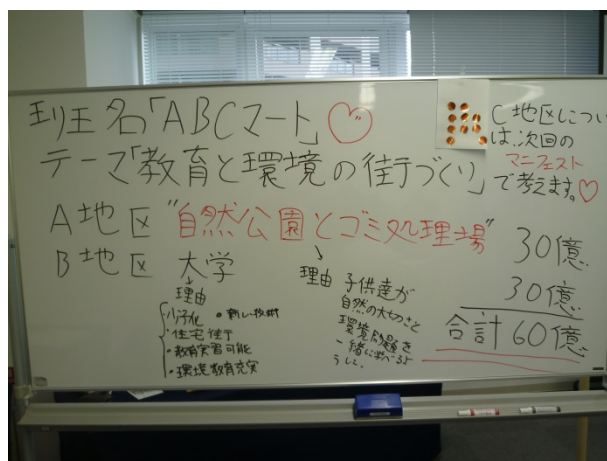 班名「ABCマート」♡
テーマ「教育と環境の街づくり」
C地区につい
ては、次回の
マニフェスト
で考えます。♡
A地区 "自然公園とゴミ処理場" 30億
B地区 大学 30億
合計60億
理由
少子化 ・新しい技術
・住宅街
・教育実習可能
・環境教育充実
理由 子供達が
自然の大切さと
環境問題を
一緒に学べるよ
うに。